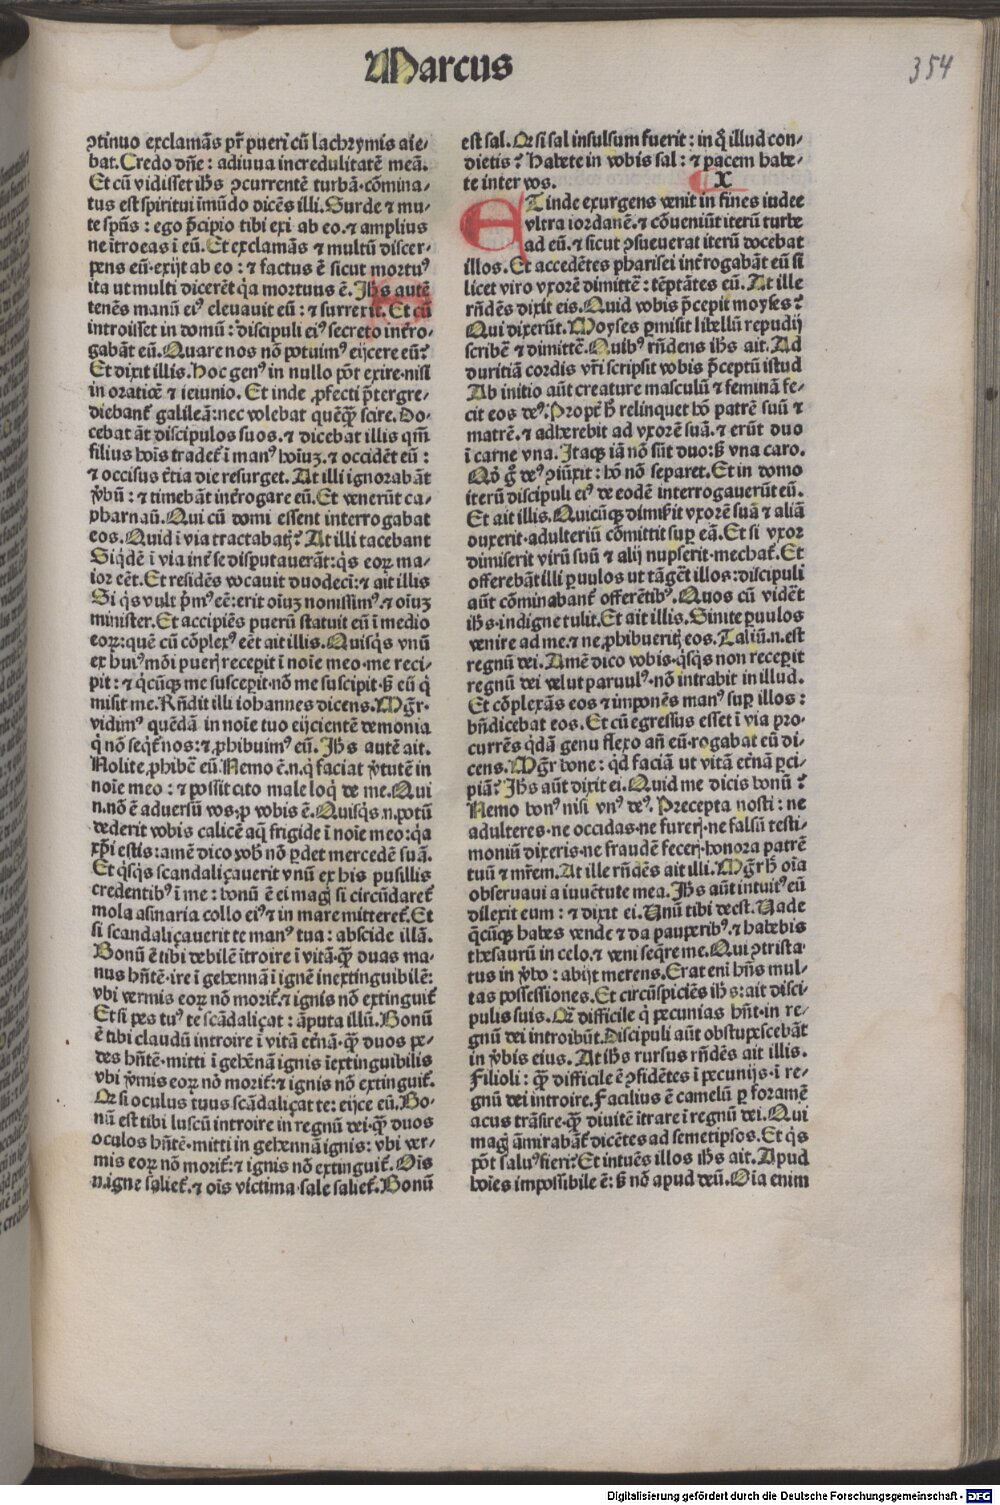 Marcus
354
ꝯtinuo exclamãs pr̃ pueri cũ lachrymis aie⸗
bat. Credo dñe : adiuua incredulitatẽ meã.
Et cũ vidisset ihs ꝯcurrentẽ turbã · cõmina⸗
tus est spiritui ĩmũdo dicẽs illi. Surde ⁊ mu⸗
te spũs : ego p̃cipio tibi exi ab eo. ⁊ amplius
ne ĩtroeas ĩ eũ. Et exclamãs ⁊ multũ discer⸗
pens eũ · exijt ab eo : ⁊ factus ẽ sicut mortuꝰ
ita ut multi dicerẽt q̃a mortuus ẽ. Ihs autẽ
tenẽs manũ eiꝰ eleuauit eũ : ⁊ surrexit. Et cũ
introisset in domũ : discipuli eiꝰ secreto inťro⸗
gabãt eũ. Quare nos nõ potuimꝰ eijcere eũ?
Et dixit illis. Hoc genꝰ in nullo põt exire · nisi
in oratiõe ⁊ ieiunio. Et inde ꝓfecti p̃tergre⸗
diebanť galileã : nec volebat quẽq̃ȝ scire. Do⸗
cebat ãt discipulos suos. ⁊ dicebat illis qm̃
filius hoĩs tradeť ĩ manꝰ hoĩuȝ. ⁊ occidẽt eũ :
⁊ occisus ťtia die resurget. At illi ignorabãt
v̾bũ : ⁊ timebãt inťrogare eũ. Et venerũt ca⸗
pharnaũ. Qui cũ domi essent interrogabat
eos. Quid ĩ via tractabatꝭ? At illi tacebant
Siq̃dẽ ĩ via inť se disputauerãt : q̃s eoꝝ ma⸗
ior eẽt. Et residẽs vocauit duodecĩ : ⁊ ait illis
Si q̃s vult p̃mꝰ eẽ : erit oĩuȝ nouissimꝰ. ⁊ oĩuȝ
minister. Et accipiẽs puerũ statuit eũ ĩ medio
eoꝝ : quẽ cũ cõplexꝰ eẽt ait illis. Quisq̃s vnũ
ex huiꝰmõi pueꝭ receꝑit ĩ noĩe meo · me reci⸗
pit : ⁊ q̃cũqȝ me susceꝑit · nõ me suscipit · s̃ eũ q̃
misit me. Rñdit illi iohannes dicens. Mg̃r ·
vidimꝰ quẽdã in noĩe tuo eijcientẽ demonia
q̃ nõ seq̃ť nos : ⁊ ꝓhibuimꝰ eũ. Ihs autẽ ait.
Nolite ꝓhibẽ eũ. Nemo ẽ.n. q̃ faciat v̾tutẽ in
noĩe meo : ⁊ possit cito male loq̃ de me. Qui
.n. nõ ẽ aduersũ vos · ꝓ vobis ẽ. Quisq̃s.n. potũ
dederit vobis calicẽ aq̃ frigide ĩ noĩe meo : q̃a
xp̃i estis : amẽ dico vob̃ nõ ꝑdet mercedẽ suã.
Et q̃sq̃s scandaliçauerit vnũ ex his pusillis
credentibꝰ ĩ me : bonũ ẽ ei mag̃ si circũdareť
mola asinaria collo eiꝰ ⁊ in mare mittereť. Et
si scandaliçauerit te manꝰ tua : abscide illã.
Bonũ ẽ tibi debilẽ ĩtroire ĩ vitã · q̃ȝ duas ma⸗
nus hñtẽ · ire ĩ gehennã ĩ ignẽ inextinguibilẽ :
vbi vermis eoꝝ nõ moriť. ⁊ ignis nõ extinguiť
Et si pes tuꝰ te scãdaliçat : ãputa illũ. Bonũ
ẽ tibi claudũ introire ĩ vitã eťnã · q̃ȝ duos pe⸗
des hñtẽ · mitti ĩ gehẽnã ignis ĩextinguibilis
vbi v̾mis eoꝝ nõ moriť : ⁊ ignis nõ extinguiť.
Qȝ si oculus tuus scãdaliçat te : eijce eũ. Bo⸗
nũ est tibi luscũ introire in regnũ dei · q̃ȝ duos
oculos hñtẽ · mitti in gehennã ignis : vbi ver⸗
mis eoꝝ nõ moriť : ⁊ ignis nõ extinguiť. Oĩs
.n. igne salieť. ⁊ oĩs victima sale salieť. Bonũ
est sal. Qȝ si sal insulsum fuerit : in q̃ illud con⸗
dietis? Habete in vobis sal : ⁊ pacem habe⸗
te inter vos.
X
ET inde exurgens venit in fines iudee
vltra iordanẽ. ⁊ cõueniũt iterũ turbe
ad eũ. ⁊ sicut ꝯsueuerat iterũ docebat
illos. Et accedẽtes pharisei inťrogabãt eũ si
licet viro vxorẽ dimittẽ : tẽptãtes eũ. At ille
rñdẽs dixit eis. Quid vobis p̃cepit moyses?
Qui dixerũt. Moyses ꝑmisit libellũ repudij
scribẽ ⁊ dimittẽ. Quibꝰ rñdens ihs ait. Ad
duritiã cordis vr̃i scripsit vobis p̃ceptũ istud
Ab initio aũt creature masculũ ⁊ feminã fe⸗
cit eos deꝰ. Propť h̾ relinquet hõ patrẽ suũ ⁊
matrẽ. ⁊ adherebit ad vxorẽ suã. ⁊ erũt duo
ĩ carne vna. Itaqȝ iã nõ sũt duo : s̃ vna caro.
Qȯ g̊ deꝰ ꝯiũxit : hõ nõ separet. Et in domo
iterũ discipuli eiꝰ de eodẽ interrogauerũt eũ.
Et ait illis. Quicũqȝ dimiserit vxorẽ suã ⁊ aliã
duxerit · adulteriũ cõmittit suꝑ eã. Et si vxor
dimiserit virũ suũ ⁊ alij nupserit · mechať. Et
offerebãt illi ꝑuulos ut tãgẽt illos : discipuli
aũt cõminabanť offerẽtibꝰ. Quos cũ vidẽt
ihs · indigne tulit. Et ait illis. Sinite ꝑuulos
venire ad me. ⁊ ne ꝓhibueritꝭ eos. Taliũ.n. est
regnũ dei. Amẽ dico vobis · q̃sq̃s non receꝑit
regnũ dei velut paruulꝰ · nõ intrabit in illud.
Et cõplexãs eos ⁊ imponẽs manꝰ suꝑ illos :
bñdicebat eos. Et cũ egressus esset ĩ via pro⸗
currẽs q̃dã genu flexo añ eũ · rogabat eũ di⸗
cens. Mg̃r bone : q̃d faciã ut vitã eťnã ꝑci⸗
piã? Ihs aũt dixit ei. Quid me dicis bonũ?
Nemo bonꝰ nisi vnꝰ deꝰ. Precepta nosti : ne
adulteres · ne occidas · ne fureꝭ · ne falsũ testi⸗
moniũ dixeris · ne fraudẽ feceꝭ · honora patrẽ
tuũ ⁊ mr̃em. At ille rñdẽs ait illi. Mg̃r h̾ oĩa
obseruaui a iuuẽtute mea. Ihs aũt intuitꝰ eũ
dilexit eum : ⁊ dixit ei. Unũ tibi deest. Uade
q̃cũqȝ habes vende ⁊ da pauperibꝰ. ⁊ habebis
thesaurũ in celo. ⁊ veni seq̃re me. Qui ꝯtrista⸗
tus in v̾bo : abijt merens. Erat eni hñs mul⸗
tas possessiones. Et circũspiciẽs ihs : ait disci⸗
pulis suis. Qȝ difficile q̃ pecunias hñt · in re⸗
gnũ dei introibũt. Discipuli aũt obstupescebãt
in v̾bis eius. At ihs rursus rñdẽs ait illis.
Filioli : q̃ȝ difficile ẽ ꝯfidẽtes ĩ pecunijs · ĩ re⸗
gnũ dei introire. Facilius ẽ camelũ ꝑ foramẽ
acus trãsire · q̃ȝ diuitẽ ĩtrare ĩ regnũ dei. Qui
mag̃ ãmirabãť dicẽtes ad semetipsos. Et q̃s
põt saluꝰ fieri? Et intuẽs illos ihs ait. Apud
hoĩes impossibile ẽ : s̃ nõ apud deũ. Oĩa enim
Digitalisierung gefördert durch die Deutsche Forschungsgemeinschaft - DFG